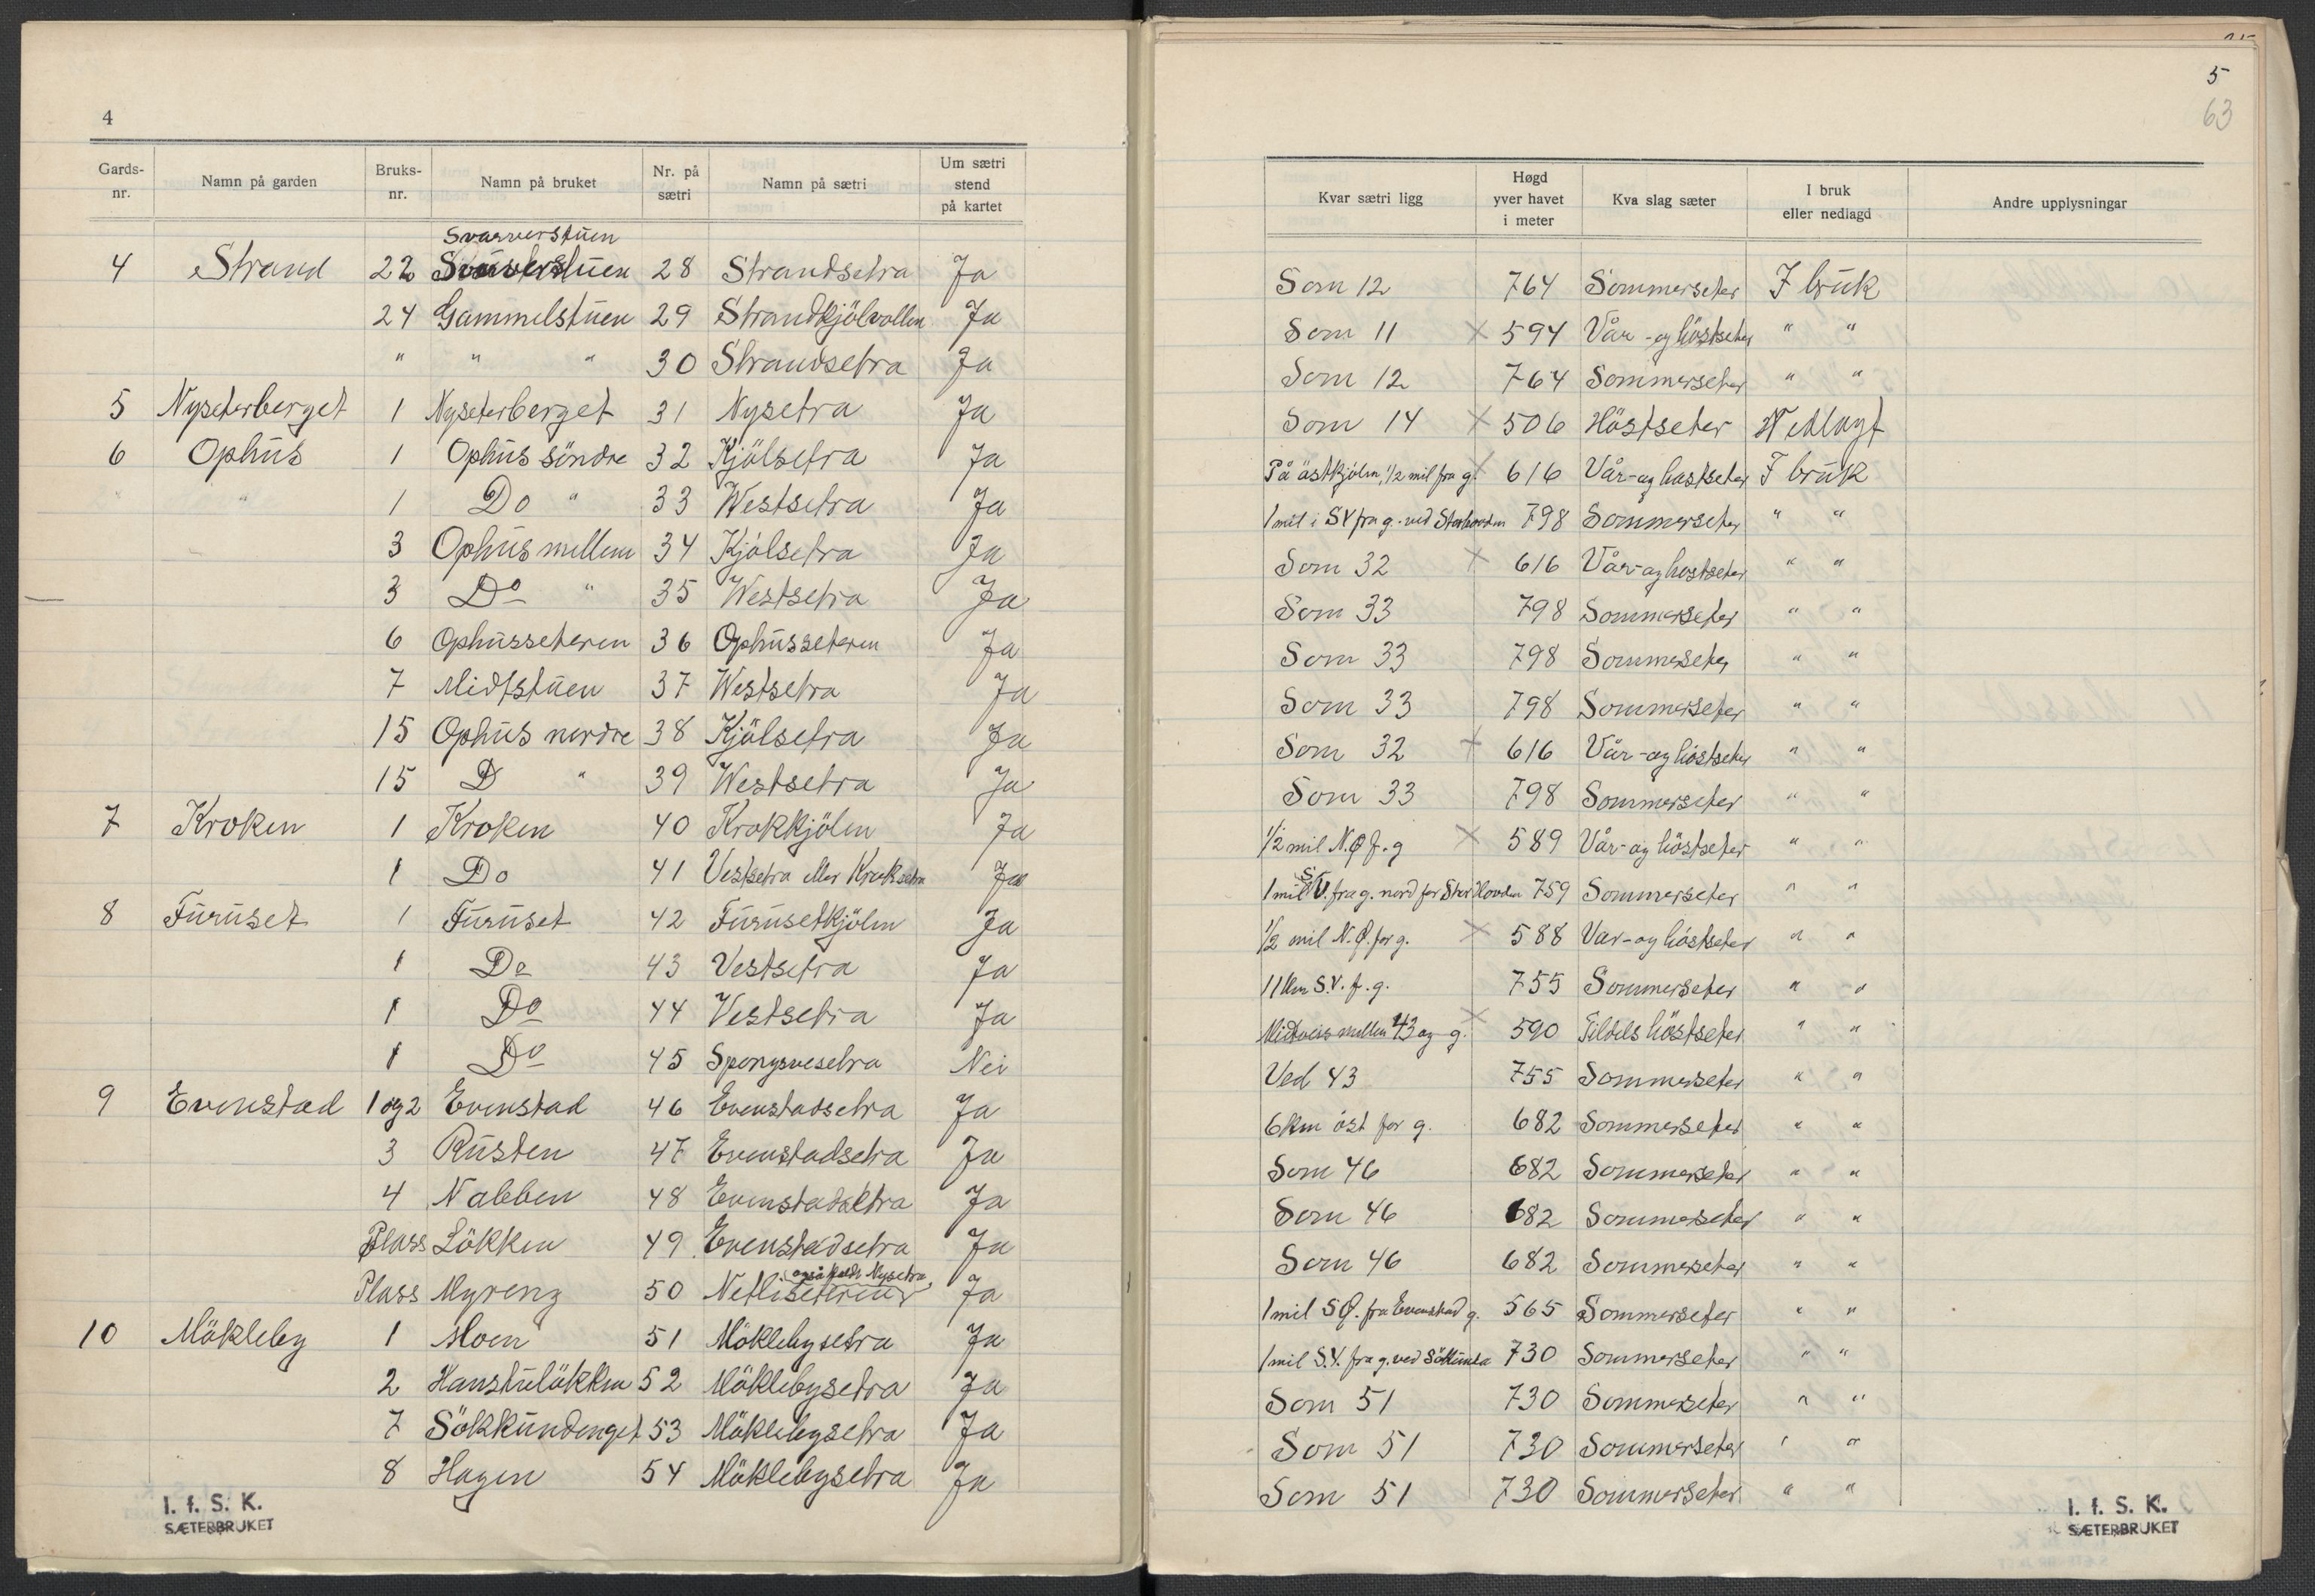 4
Gards-nr. Namn på garden Bruks-nr. Namn på bruket Nr. på sætri Namn på sætri Um sætri stend på kartet
Svarverstuen
4 Strand 22 28 Strandsetra Ja
24 Gammelstuen 29 Strandkjölvollen Ja
" " " 30 Strandsetra Ja
5 Nyseterberget 1 Nyseterberget 31 Nysetra Ja
6 Ophus 1 Ophus söndre 32 Kjölsetra Ja
" " 1 Do " 33 Westsetra Ja
3 Ophus mellem 34 Kjölsetra Ja
3 Do " 35 Westsetra Ja
6 Ophusseteren 36 Ophusseteren Ja
7 Midtstuen 37 Westsetra Ja
15 Ophus nordre 38 Kjölsetra Ja
15 D " 39 Westsetra Ja
7 Kroken 1 Kroken 40 Krokkjölen Ja
1 Do 41 Vestsetra eller Kroksetra Ja
8 Furuset 1 Furuset 42 Furusetkjölen Ja
1 Do 43 Vestsetra Ja
1 Do 44 Vestsetra Ja
1 Do 45 Spongsvesetra Nei
9 Evenstad 1 og 2 Evenstad 46 Evenstadsetra Ja
3 Rusten 47 Evenstadsetra Ja
4 Nabben 48 Evenstadsetra Ja
Plass Lökken 49 Evenstadsetra Ja
også kaldt Nysetra
Plass Myreng 50 Netliseterene Ja
10 Mökleby 1 Moen 51 Möklebysetra Ja
2 Hanstulökken 52 Möklebysetra Ja
7 Sökkundenget 53 Möklebysetra Ja
8 Hagen 54 Möklebysetra Ja
I. f. S. K.
SÆTERBRUKET
5
63
Kvar sætri ligg Høgd yver havet i meter Kva slag sæter I bruk eller nedlagd Andre upplysningar
Som 12 764 Sommerseter I bruk
Som 11 × 594 Vår-og höstseter " "
Som 12 764 Sommerseter " "
Som 14 × 506 Höstseter Nedlagt
På östkjölen, 1/2 mil fra g. × 616 Vår-og höstseter I bruk
1 mil i SV fra g. ved Storhovden 798 Sommerseter " "
Som 32 × 616 Vår-og höstseter " "
Som 33 798 Sommerseter " "
Som 33 798 Sommerseter " "
Som 33 798 Sommerseter " "
Som 32 × 616 Vår-og höstseter " "
Som 33 798 Sommerseter " "
1/2 mil N.Ø f. g × 589 Vår-og höstseter " "
1 mil S.V. fra g. nord for Storhovden 759 Sommerseter " "
1/2 mil N.Ø. for g. × 588 Vår-og höstseter " "
11 km S.V. f. g. 755 Sommerseter " "
Midtveis mellem 43 og g. × 590 Tildels höstseter " "
Ved 43 755 Sommerseter " "
6 km öst for g. 682 Sommerseter " "
Som 46 682 Sommerseter " "
Som 46 682 Sommerseter " "
Som 46 682 Sommerseter " "
1 mil S.Ø. fra Evenstad g. 565 Sommerseter " "
1 mil S.V. fra g. ved Sökkunda 730 Sommerseter " "
Som 51 730 Sommerseter " "
Som 51 730 Sommerseter " "
Som 51 730 Sommerseter " "
I. f. S. K.
SÆTERBRUKET